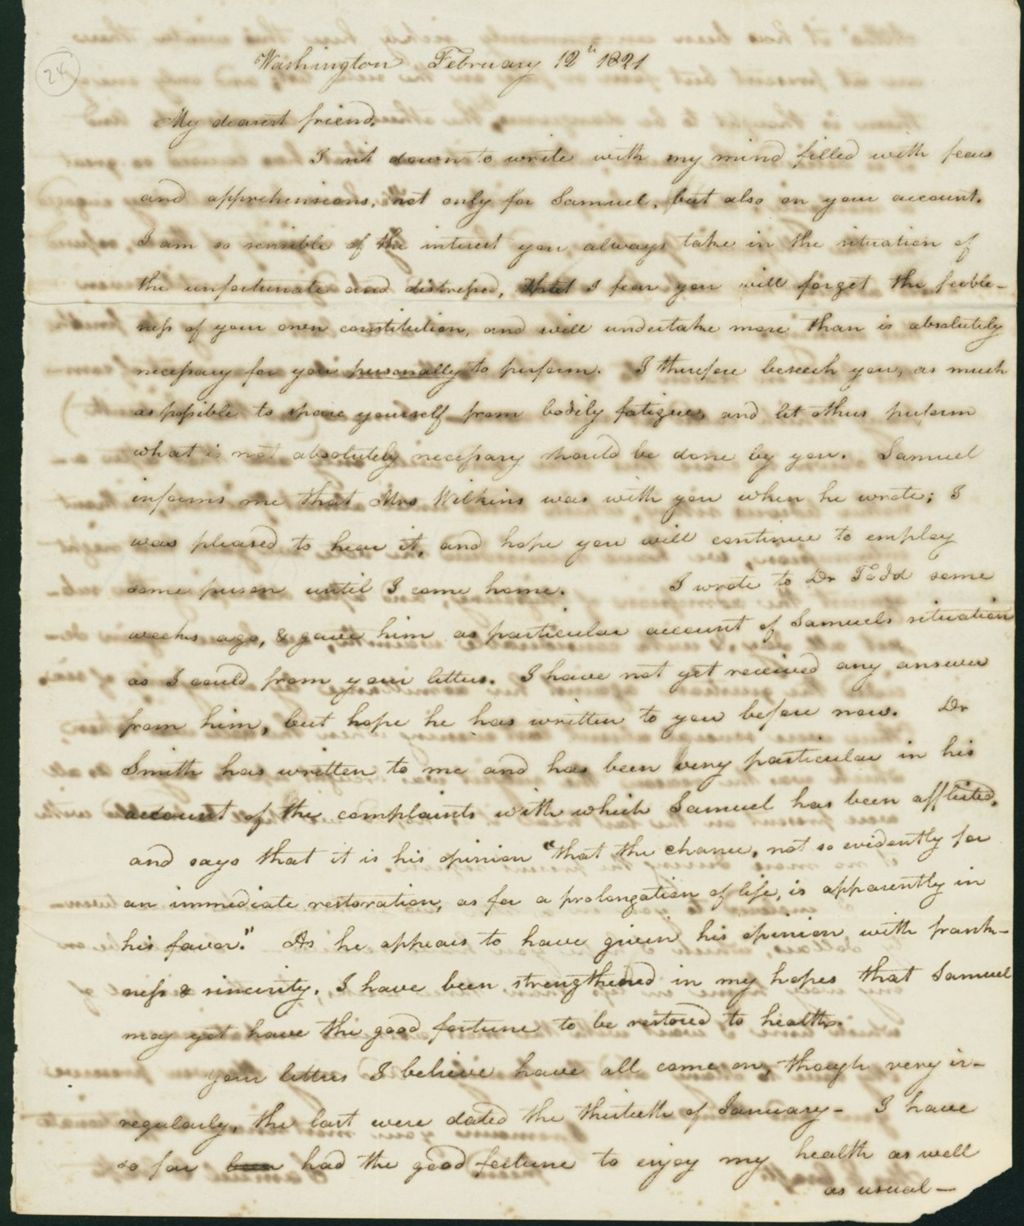 24
Washington February 12th 1821
My dearest friend.
I sit down to write with my mind filled with fears
and apprehensions, not only for Samuel, but also on your account.
I am so sensible of the interest you always take in the situation of
the unfortunate and distressed, that I fear you will forget the feeble-
ness of your own constitution, and will undertake more than is absolutely
necessary for you personally to perform. I therefore beseech you, as much
as possible to spare yourself from bodily fatigue, and let others perform
what is not absolutely necessary should be done by you. Samuel
informs me that Mrs Wilkins was with you when he wrote; I
was pleased to hear it, and hope you will continue to employ
some person until I come home. I wrote to Dr Todd some
weeks ago, & gave him as particular account of Samuels situation
as I could from your letters. I have not yet received any answer
from him, but hope he has written to you before now. Dr
Smith has written to me and has been very particular in his
account of the complaints with which Samuel has been afflicted,
and says that it is his opinion "that the chance, not so evidently for
an immediate restoration, as for a prolongation of life, is apparently in
his favor." As he appears to have given his opinion with frank-
ness & sincerity, I have been strengthened in my hopes that Samuel
may yet have the good fortune to be restored to health.
Your letters I believe have all come on, though very ir-
regularly, the last were dated the thirtieth of January- I have
so far been had the good fortune to enjoy my health as well
as usual-